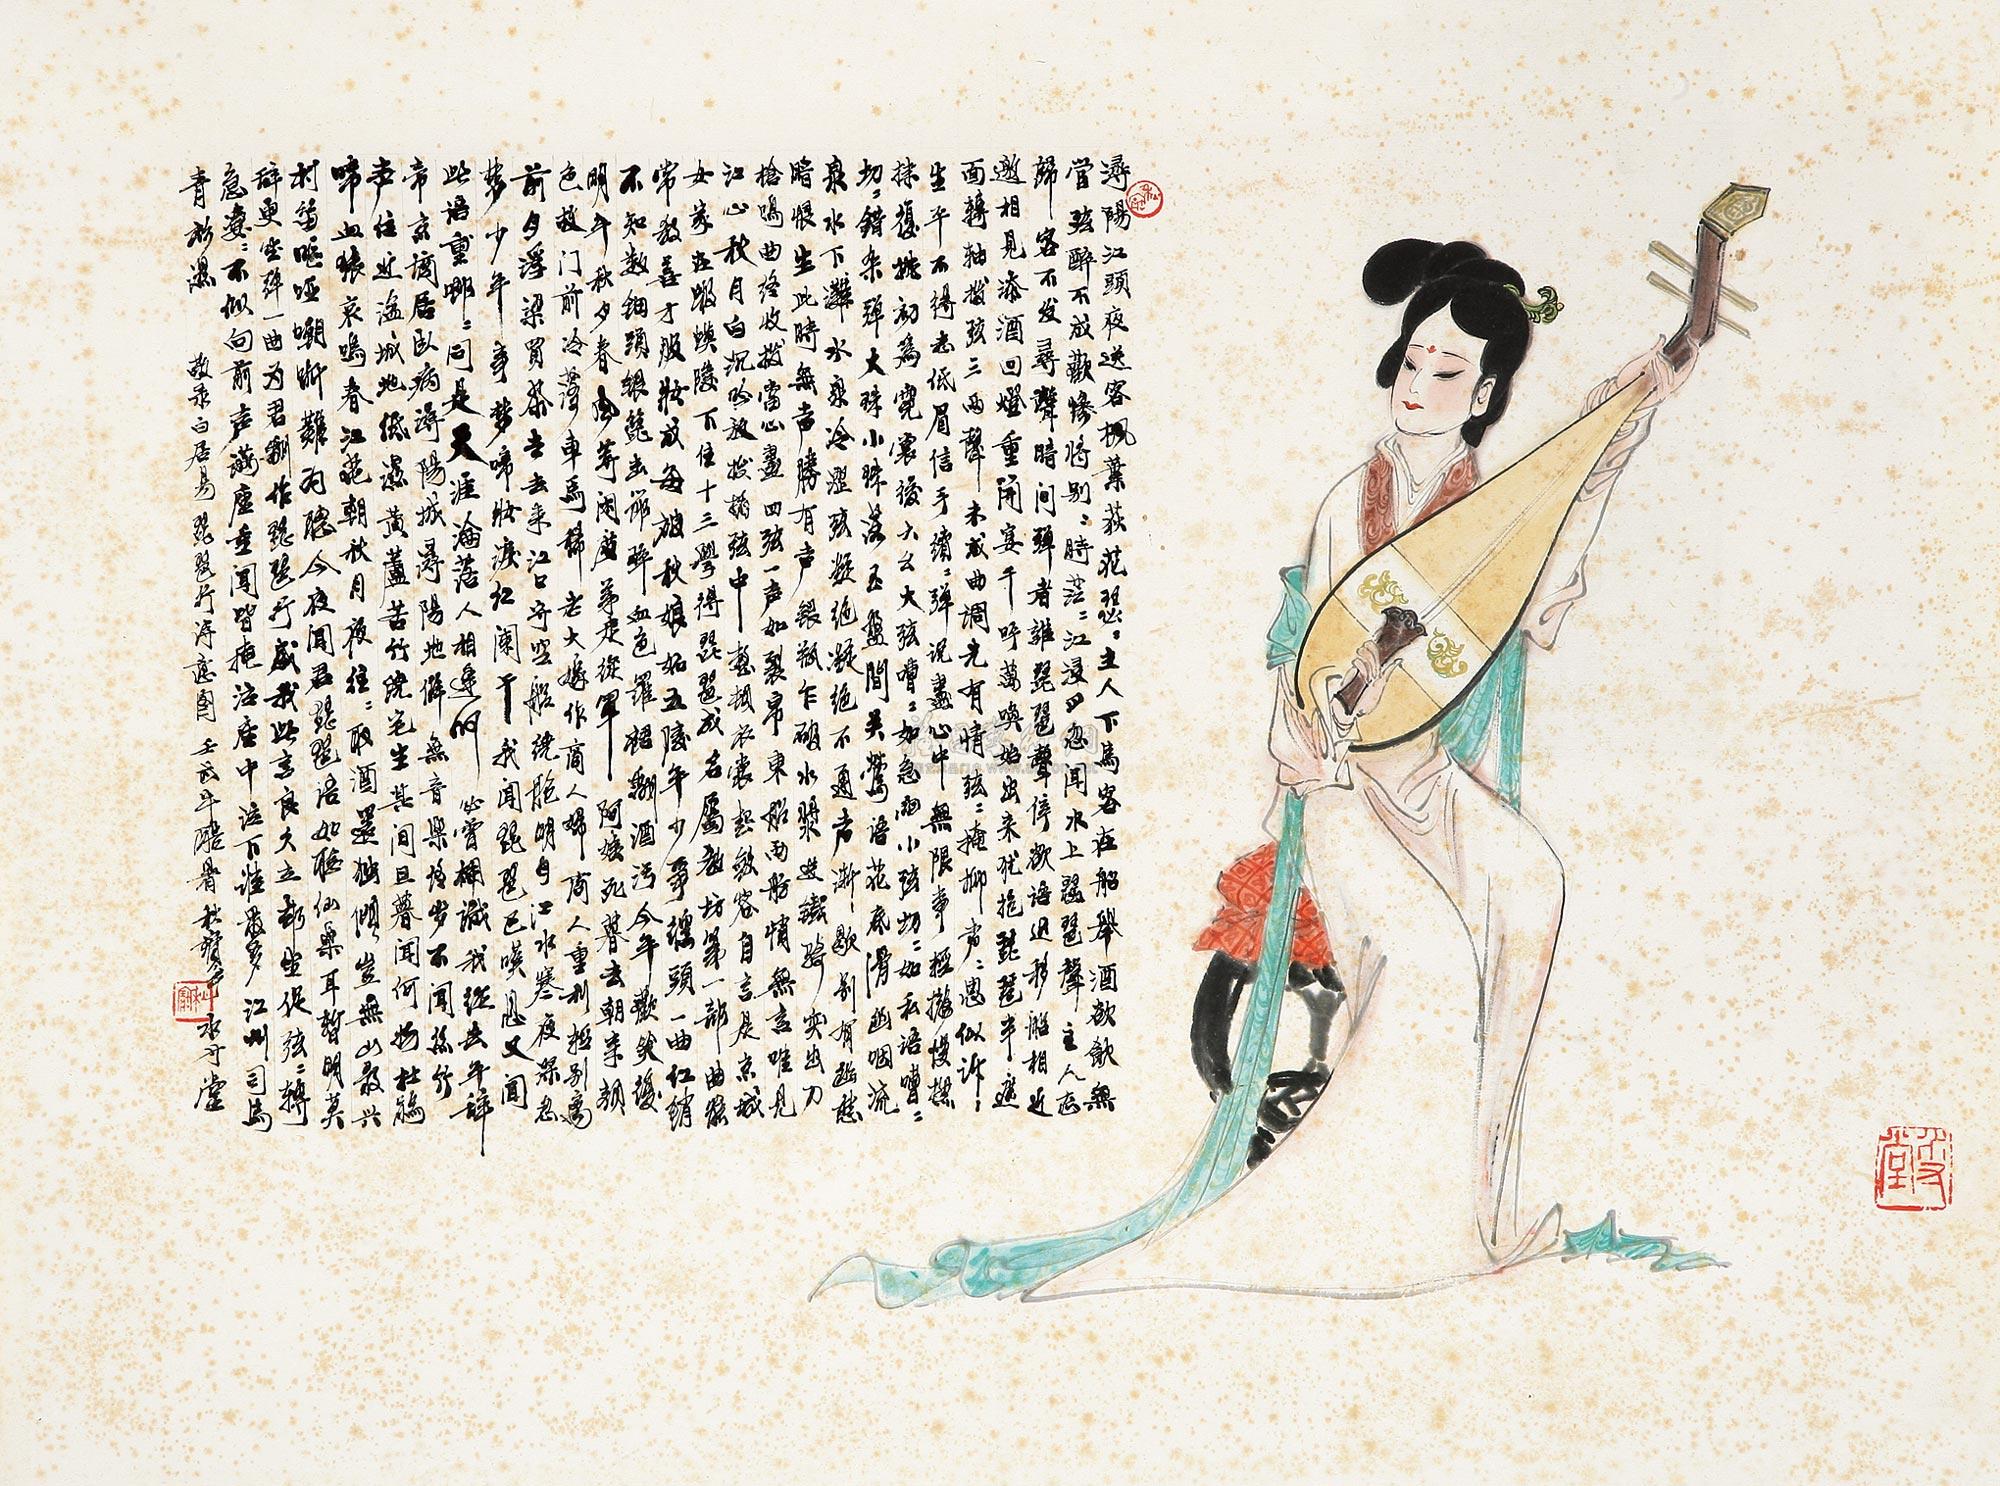 潯陽江頭夜送客楓葉荻花瑟〻主人下馬客在船舉酒欲飲無
管弦醉不成歡慘將别〻時茫〻江浸月忽闻水上琵琶聲主人忘
歸客不发尋聲暗问弹者誰琵琶聲停欲语迟移船相近
邀相見添酒回燈重開宴千呼萬喚始出来犹抱琵琶半遮
面轉轴拨弦三兩聲未成曲调先有情弦〻掩抑声〻思似訴
生平不得志低眉信手續〻弹说盡心中無限事輕撥慢撚
抹復挑初爲霓裳後六幺大弦嘈〻如急雨小弦切〻如私语嘈〻
切〻錯杂弹大珠小珠落玉盤間关鶯语花底滑幽咽流
泉水下灘水泉冷澀弦凝绝凝绝不通声渐歇别有幽愁
暗恨生此時無声勝有声银瓶乍破水漿迸鐵騎突出刀
槍鳴曲终收拨當心畫四弦一声如裂帛東船西舫悄無言唯見
江心秋月白沉吟放拨插弦中整頓衣裳起斂容自言是京城
女家在蝦蟆陵下住十三學得琵琶成名屬教坊第一部曲罷
常教善才服妝成每被秋娘妬五陵年少爭纏頭一曲红绡
不知数钿頭银篦击節碎血色羅裙翻酒污今年歡笑復
明年秋月春風等闲度弟走從軍阿姨死暮去朝来颜
色故门前冷落車馬稀老大嫁作商人婦商人重利輕别离
前月浮梁買茶去去来江口守空船绕船明月江水寒夜深忽
梦少年事梦啼妝淚红阑干我闻琵琶已嘆息又闻
此语重唧〻同是天涯淪落人相逢何必曾相識我從去年辞
帝京谪居卧病潯陽城潯陽地僻無音樂终岁不闻絲竹
声住近湓城地低濕黄蘆苦竹绕宅生其间旦暮闻何物杜鵑
啼血猿哀鳴春江花朝秋月夜往〻取酒還獨傾豈無山歌与
村笛嘔哑嘲哳難为聽今夜闻君琵琶语如聽仙樂耳暫明莫
辞更坐弹一曲为君翻作琵琶行感我此言良久立却坐促弦〻轉
急凄〻不似向前声满座重闻皆掩泣座中泣下誰最多江州司馬
青衫濕 敬录白居易琵琶行诗意图 壬戌年